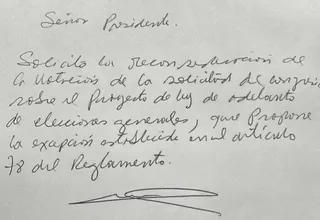 Señor Presidente.
Solicito la reconsideración de
la votación de la solicitud de
sobre el Proyecto de ley de adelanto
de elecciones generales, que Propone
la exoneración establecida en el artículo
78 del Reglamento.